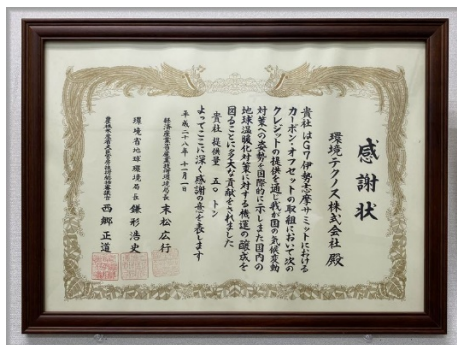 感謝状
環境テクノス株式会社 殿
貴社はG7伊勢志摩サミットにおける
カーボン・オフセットの取組において次の
クレジットの提供を通じ我が国の気候変動
対策への姿勢を国際的に示しまた国内の
地球温暖化対策に対する機運の醸成を
図ることに多大な貢献をされました
貴社 提供量 五〇トン
よってここに深く感謝の意を表します
平成二十八年十一月一日
経済産業省産業技術環境局長 末松広行
環境省地球環境局長 鎌形浩史
農林水産省大臣官房技術総括審議官 西郷正道